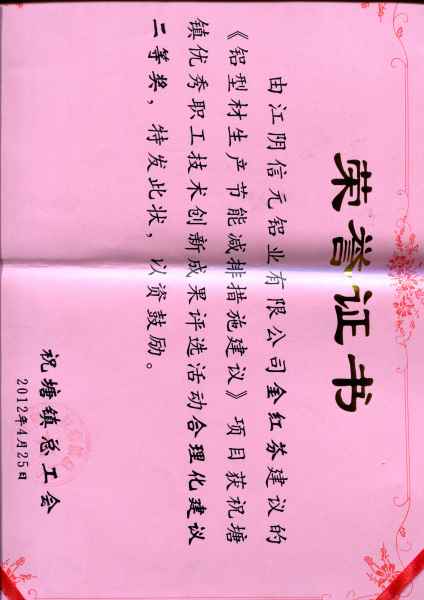 荣誉证书
由江阴信元铝业有限公司金红芬建议的
《铝型材生产节能减排措施建议》项目获祝塘
镇优秀职工技术创新成果评选活动合理化建议
二等奖，特发此状，以资鼓励。
祝塘镇总工会
2012年4月25日